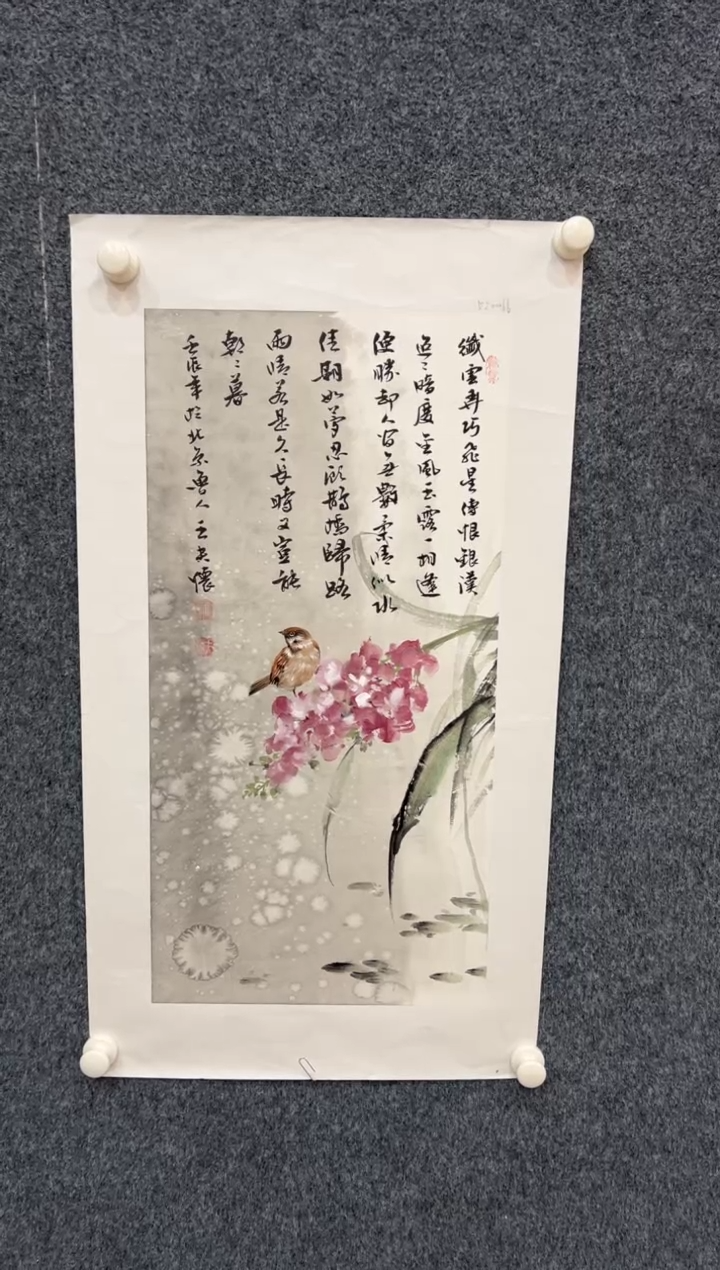 纖雲弄巧飛星傳恨銀漢
迢〻暗度金風玉露一相逢
便勝却人間無數柔情似水
佳期如夢忍顧鵲橋歸路
兩情若是久長時又豈能
朝〻暮
壬辰年於北京魯人王懷